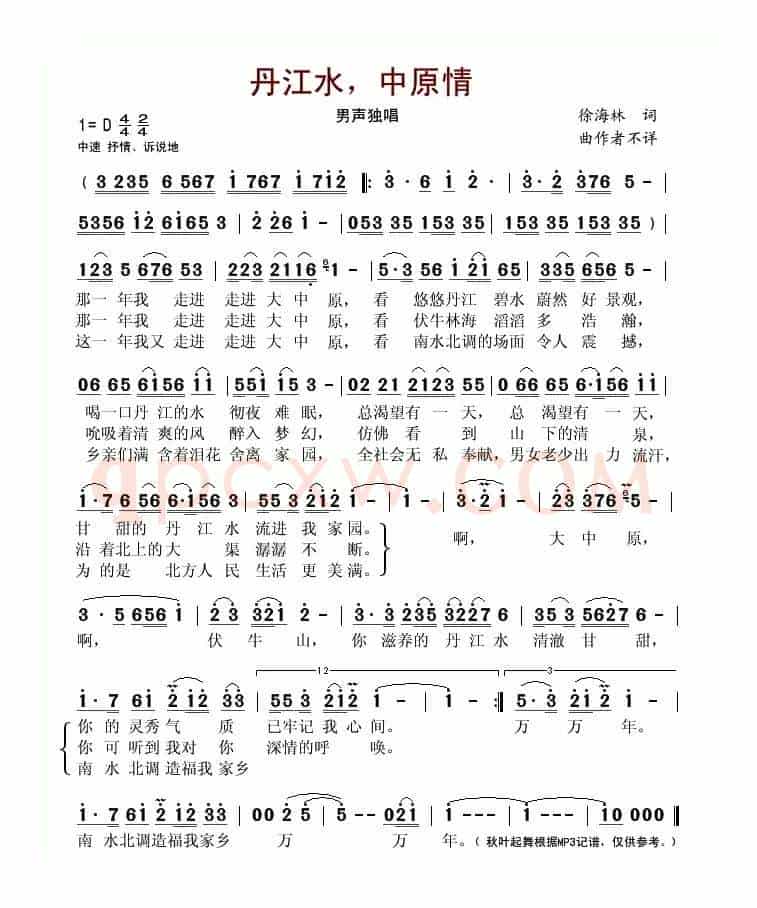 丹江水，中原情
男声独唱
徐海林 词
曲作者不详
1=D 4/4 2/4
中速 抒情、诉说地
( 3 235 6 567 1 767 1 712 ‖: 3 · 6 1 2 · | 3 · 2 376 5 - |
5356 12 6165 3 | 2 26 1 - | 053 35 153 35 | 153 35 153 35 )
123 5 676 53 | 223 2116 1 - | 5·3 56 1 21 65 | 335 656 5 - |
那一 年我 走进 走进 大 中 原， 看 悠悠丹江 碧水 蔚然 好 景观，
那一 年我 走进 走进 大 中 原， 看 伏牛林海 滔滔 多 浩 瀚，
这一 年我又 走进 走进 大 中 原， 看 南水北调的场面 令人 震 撼，
06 65 6156 11 | 551 153 5 - | 02 22 2123 55 | 0 66 65 6·156 11 |
喝一口丹 江的水 彻夜 难 眠， 总渴望有 一 天， 总 渴望有 一 天，
吮吸着清 爽的风 醉入 梦 幻， 仿佛 看 到 山 下的清 泉，
乡亲们满 含着泪花 舍离 家 园， 全社会无 私 奉献，男女老少出 力 流汗，
gpcxw.COM
1·7 6 56 6·156 3 | 55 3 212 1 - | 3·2 1 - | 2·3 376 5 - |
甘 甜的 丹 江 水 流进 我 家园。 啊， 大 中 原，
沿 着北上的大 渠 潺潺 不 断。
为 的是 北方人 民 生活 更 美满。
3 · 5 656 1 | 2 3 321 2 - | 3·3 235 3227 6 | 35 3 5627 6 |
啊， 伏 牛 山， 你 滋养的 丹 江 水 清澈 甘 甜，
12
3
1·7 61 2 12 33 | 55 3 212 1 - | 1 - :‖ 5·3 212 1 - |
你 的 灵秀 气 质 已牢记 我 心 间。 万 万 年。
你 可 听到 我对 你 深情的 呼 唤。
南 水 北调 造福我 家乡
1·7 61 2 12 33 | 00 2 5 | 5 - - 02 | 1 - - - | 1 - - - | 10 000 ‖
南 水北调造福我家乡 万 万 年。( 秋叶起舞根据MP3记谱，仅供参考。)